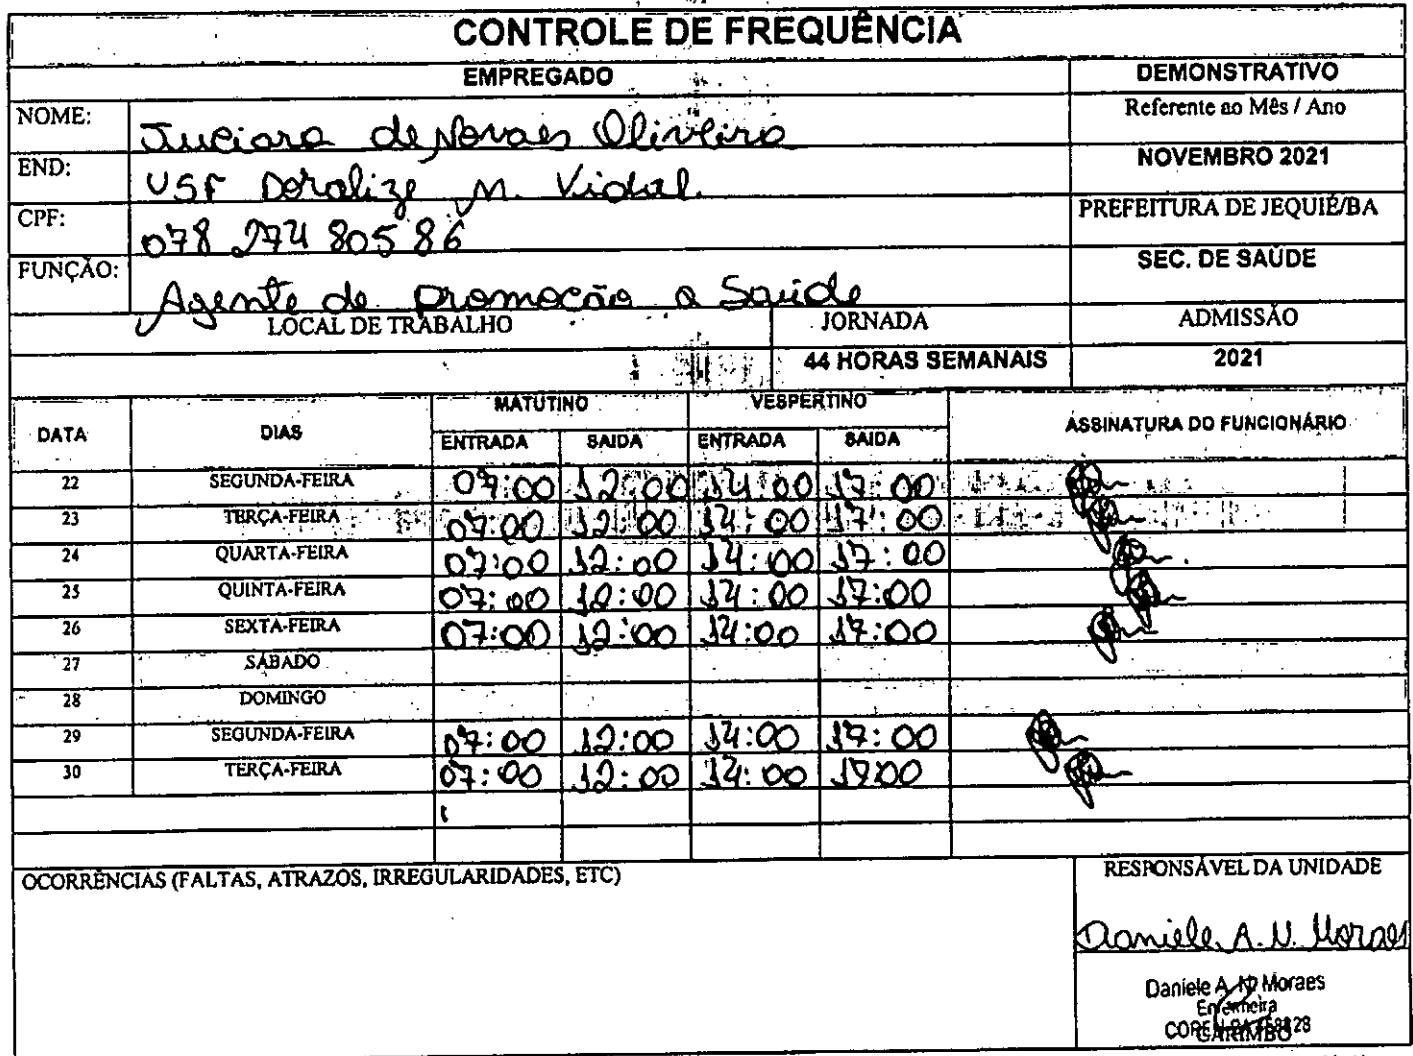 CONTROLE DE FREQUÊNCIA
EMPREGADO DEMONSTRATIVO
NOME: Juciara de Novaes Oliveira Referente ao Mês / Ano
END: USF Doralize M. Vidal. NOVEMBRO 2021
CPF: 078 274 805 86 PREFEITURA DE JEQUIÉ/BA
FUNÇÃO: Agente de promoção a Saúde SEC. DE SAÚDE
LOCAL DE TRABALHO JORNADA ADMISSÃO
44 HORAS SEMANAIS 2021
DATA DIAS MATUTINO VESPERTINO ASSINATURA DO FUNCIONÁRIO
ENTRADA SAIDA ENTRADA SAIDA
22 SEGUNDA-FEIRA 07:00 12:00 14:00 17:00
23 TERÇA-FEIRA 07:00 12:00 14:00 17:00
24 QUARTA-FEIRA 07:00 12:00 14:00 17:00
25 QUINTA-FEIRA 07:00 12:00 14:00 17:00
26 SEXTA-FEIRA 07:00 12:00 14:00 17:00
27 SÁBADO
28 DOMINGO
29 SEGUNDA-FEIRA 07:00 12:00 14:00 17:00
30 TERÇA-FEIRA 07:00 12:00 14:00 17:00
OCORRÊNCIAS (FALTAS, ATRAZOS, IRREGULARIDADES, ETC) RESPONSÁVEL DA UNIDADE
Daniele A. N. Moraes
Daniele A. Nº Moraes
Enfermeira
GARIMBO